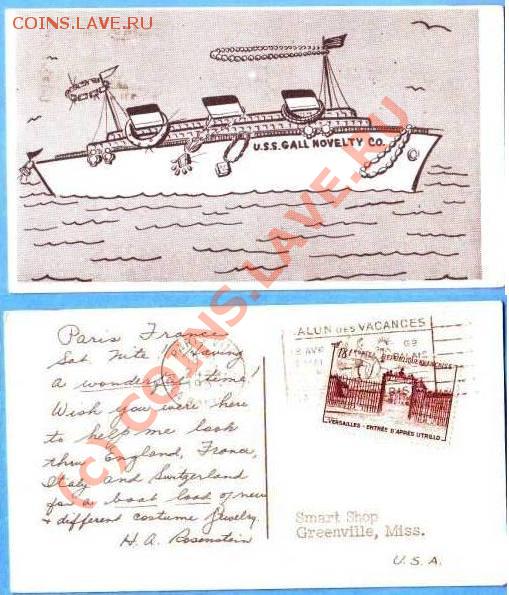 COINS.LAVE.RU
U.S.S. GALL NOVELTY CO.
(C) COINS.LAVE.RU
Paris France
Sat. Nite Having
a wonderful time!
Wish you were here
to help me look
thru England, France,
Italy and Switzerland
for a boat load of new
+ different costume jewelry.
H. A. Rosenstein
SALON DES VACANCES
18F
REPUBLIQUE FRANÇAISE
VERSAILLES - ENTRÉE D'APRÈS UTRILLO
Smart Shop
Greenville, Miss.
U. S. A.